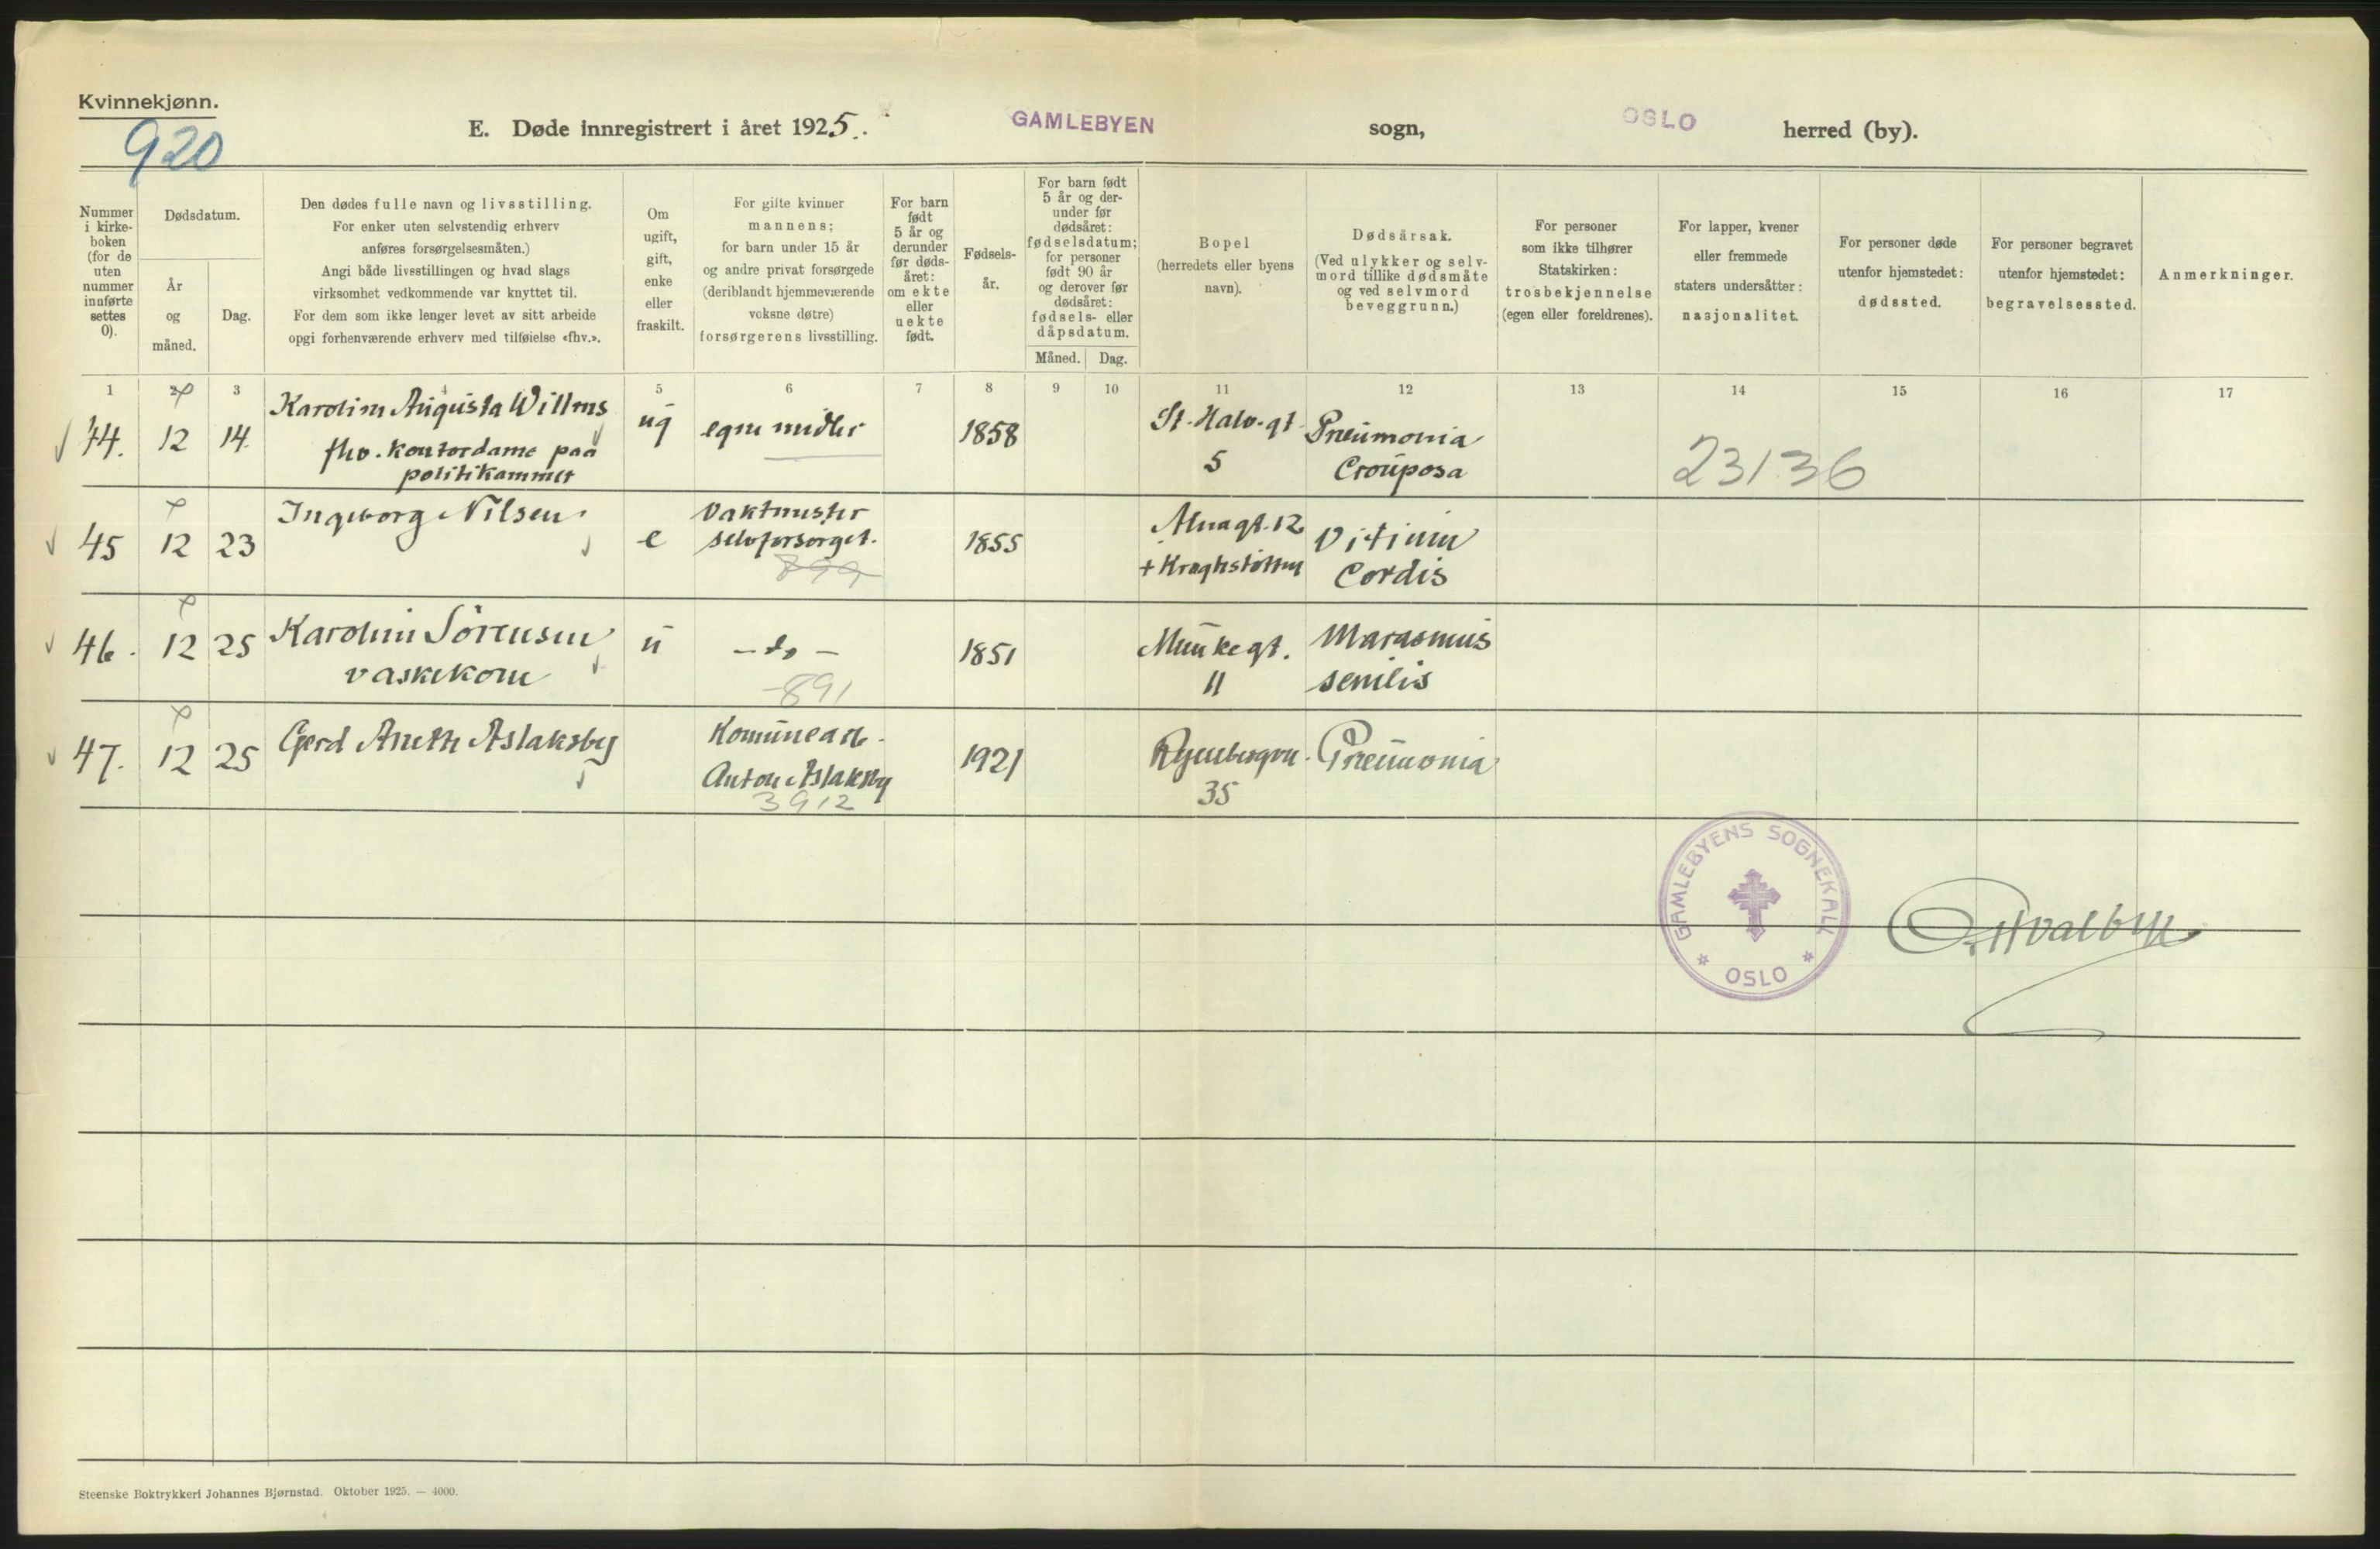 Kvinnekjønn.
920
E. Døde innregistrert i året 1925.
GAMLEBYEN
sogn,
OSLO
herred (by).
Nummer
i kirke-
boken
(for de
uten
nummer
innførte
settes
0).
Dødsdatum.
År
og
måned.
Dag.
Den dødes fulle navn og livsstilling.
For enker uten selvstendig erhverv
anføres forsørgelsesmåten.)
Angi både livsstillingen og hvad slags
virksomhet vedkommende var knyttet til.
For dem som ikke lenger levet av sitt arbeide
opgi forhenværende erhverv med tilføielse «fhv.».
Om
ugift,
gift,
enke
eller
fraskilt.
For gifte kvinner
mannens;
for barn under 15 år
og andre privat forsørgede
(deriblandt hjemmeværende
voksne døtre)
forsørgerens livsstilling.
For barn
født
5 år og
derunder
før døds-
året:
om ekte
eller
uekte
født.
Fødsels-
år.
For barn født
5 år og der-
under før
dødsåret:
fødselsdatum;
for personer
født 90 år
og derover før
dødsåret:
fødsels- eller
dåpsdatum.
Måned. Dag.
Bopel
(herredets eller byens
navn).
Dødsårsak.
(Ved ulykker og selv-
mord tillike dødsmåte
og ved selvmord
beveggrunn.)
For personer
som ikke tilhører
Statskirken:
trosbekjennelse
(egen eller foreldrenes).
For lapper, kvener
eller fremmede
staters undersåtter:
nasjonalitet.
For personer døde
utenfor hjemstedet:
dødssted.
For personer begravet
utenfor hjemstedet:
begravelsessted.
Anmerkninger.
1 3 4 5 6 7 8 9 10 11 12 13 14 15 16 17
44. 12 14. Karolin Augusta Willms
fhv. kontordame paa
politikammer
ug
egne midler
1858
St. Halv. gt
5
Pneumonia
Crouposa
23136
45 12 23 Ingeborg Nilsen
e
Vaktmester
selvforsørget.
899
1855
Almagt. 12
+ Kraghstøtten
Vitium
Cordis
46. 12 25 Karolin Sörensen
vaskekone
u
– do –
891
1851
Munkegt.
11
Marasmus
senilis
47. 12 25 Gerd Aneth Aslaksby
Komunearb.
Anton Aslaksby
3912
1921
Ryenbergvn.
35
Pneumonia
GAMLEBYENS SOGNEKALL
OSLO
Steenske Boktrykkeri Johannes Bjørnstad. Oktober 1925. — 4000.